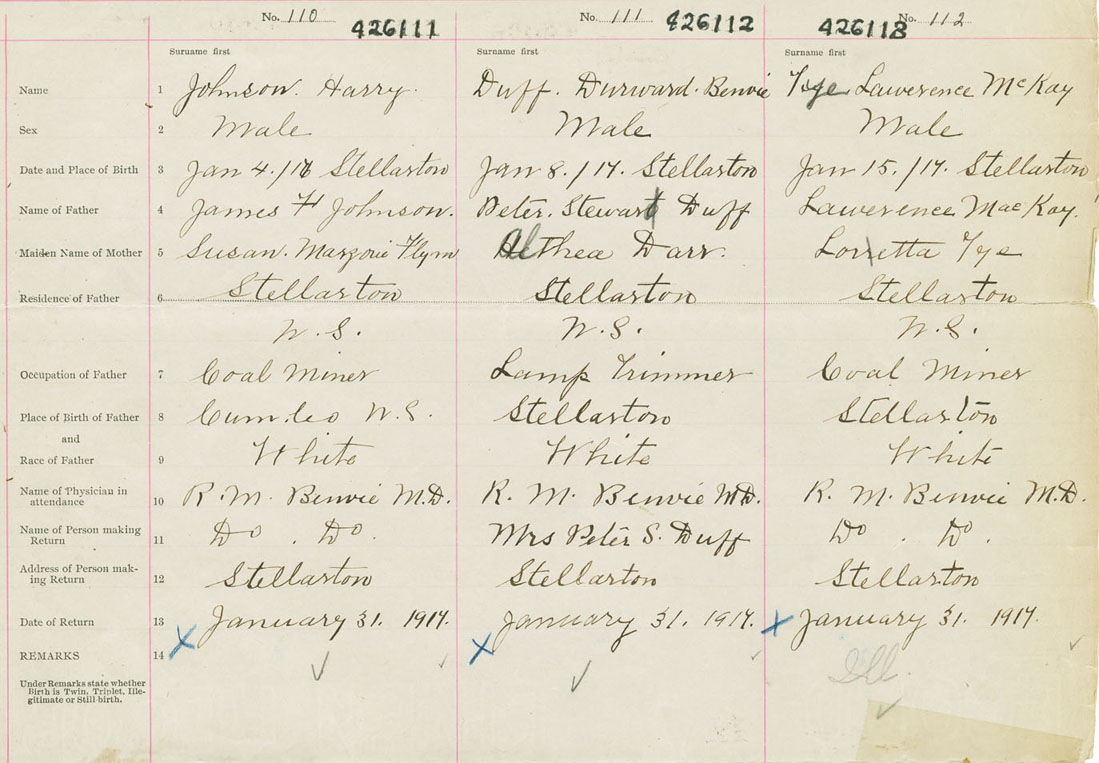 No. 110 426111 No. 111 426112 426113 No. 112
Surname first Surname first Surname first
Name 1 Johnson. Harry. Duff. Durward. Benvie Tye Lawerence McKay
Sex 2 Male Male Male
Date and Place of Birth 3 Jan 4./17 Stellarton Jan 8./17. Stellarton Jan 15./17. Stellarton
Name of Father 4 James H Johnson. Peter. Stewart Duff Lawerence MacKay.
Maiden Name of Mother 5 Susan. Marjorie Flynn Althea Darr. Lorretta Tye
Residence of Father 6 Stellarton Stellarton Stellarton
N.S. N.S. N.S.
Occupation of Father 7 Coal Miner Lamp Trimmer Coal Miner
Place of Birth of Father 8 Cum. Co N.S. Stellarton Stellarton
and
Race of Father 9 White White White
Name of Physician in
attendance 10 R. M. Benvie M.D. R. M. Benvie MD. R. M. Benvie M.D.
Name of Person making
Return 11 Do . Do. Mrs Peter S. Duff Do . Do.
Address of Person mak-
ing Return 12 Stellarton Stellarton Stellarton
Date of Return 13 January 31. 1917. January 31. 1917. January 31. 1917.
REMARKS 14 Ill.
Under Remarks state whether
Birth is Twin, Triplet, Ille-
gitimate or Still-birth.